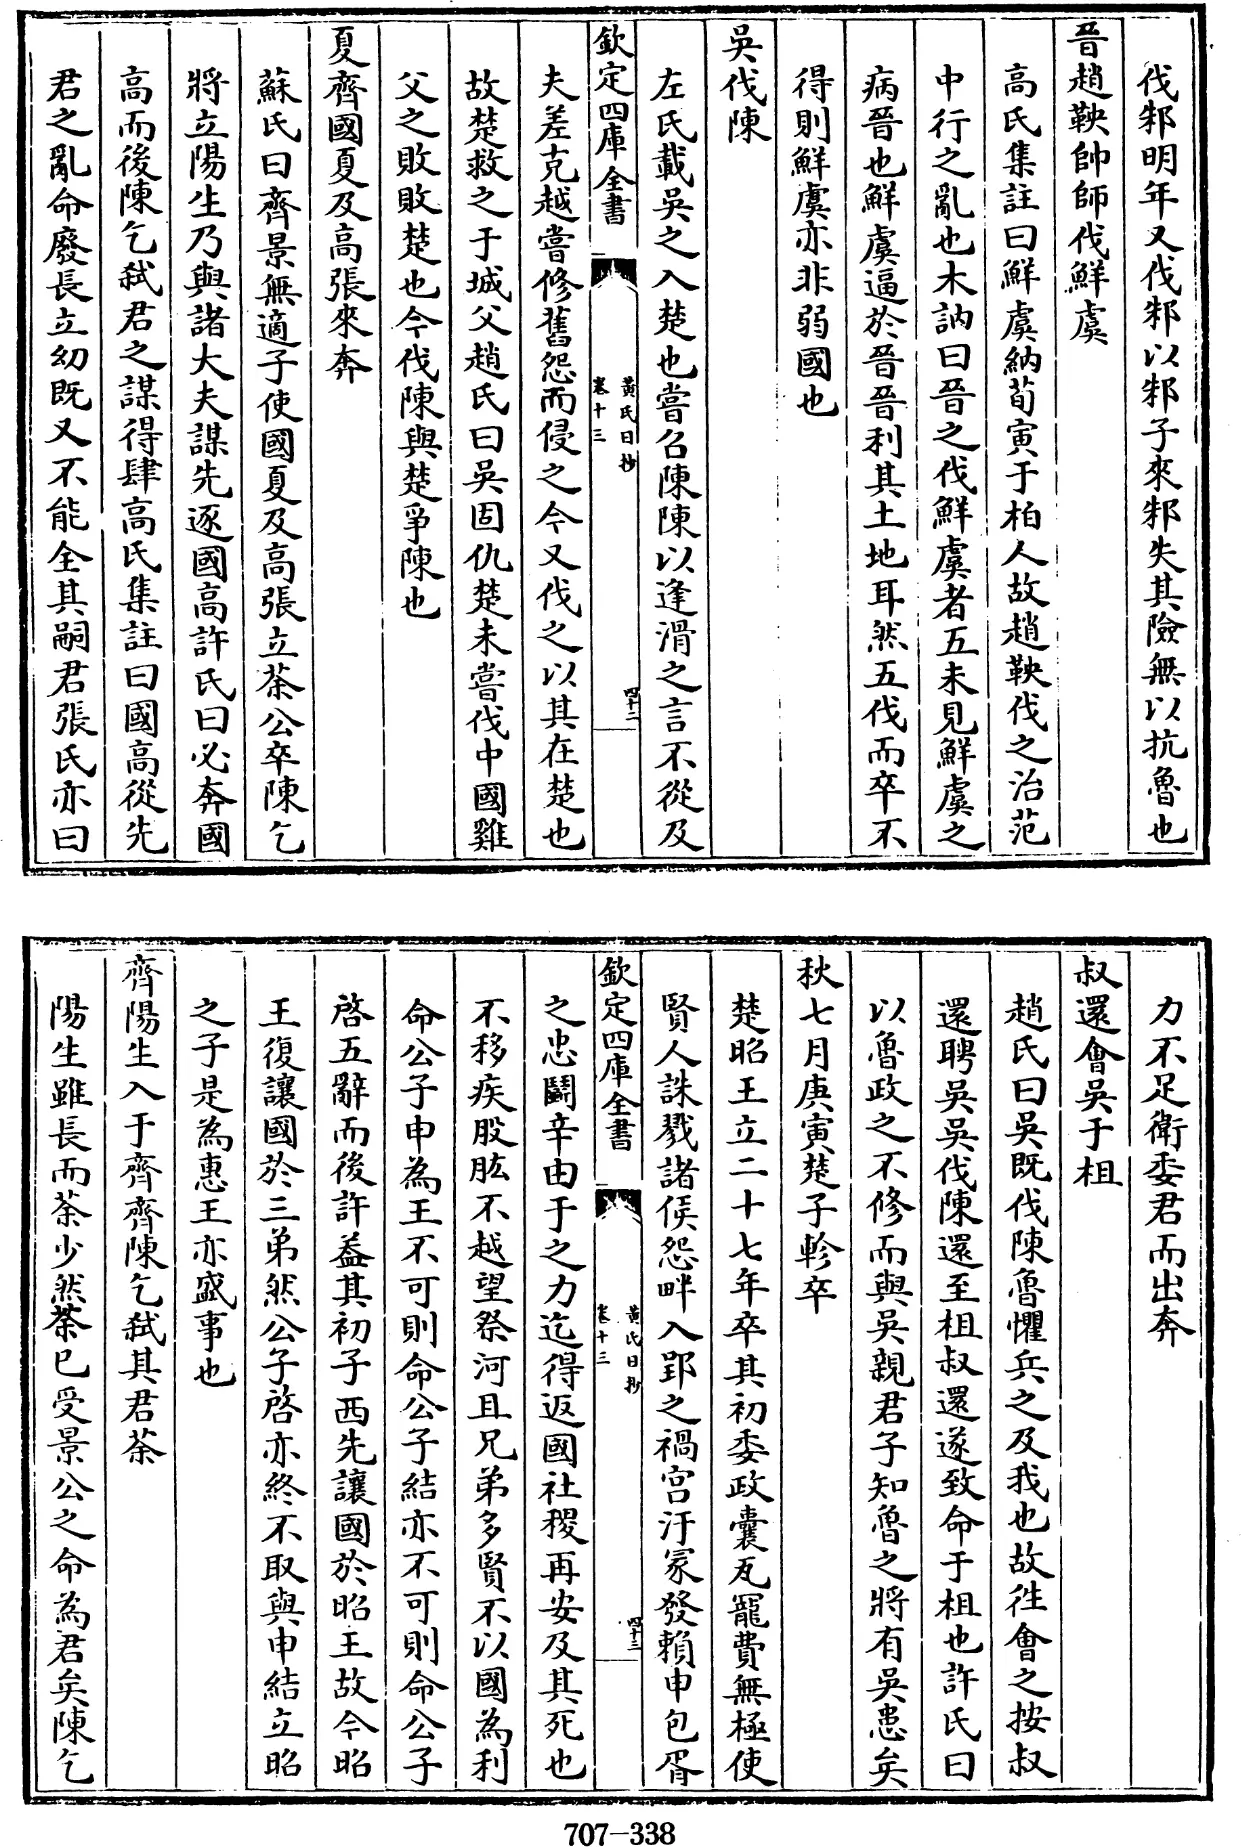 伐邾明年又伐邾以邾子來邾失其險無以抗魯也
晉趙鞅帥師伐鮮虞
高氏集註曰鮮虞納荀寅于柏人故趙鞅伐之治范
中行之亂也木訥曰晉之伐鮮虞者五未見鮮虞之
病晉也鮮虞逼於晉晉利其土地耳然五伐而卒不
得則鮮虞亦非弱國也
吳伐陳
左氏載吳之入楚也嘗召陳陳以逢滑之言不從及
欽定四庫全書
黃氏日抄
卷十三
四十二
夫差克越嘗修舊怨而侵之今又伐之以其在楚也
故楚救之于城父趙氏曰吳固仇楚未嘗伐中國雞
父之敗敗楚也今伐陳與楚爭陳也
夏齊國夏及高張來奔
蘇氏曰齊景無適子使國夏及高張立荼公卒陳乞
將立陽生乃與諸大夫謀先逐國高許氏曰必奔國
高而後陳乞弑君之謀得肆高氏集註曰國高從先
君之亂命廢長立幼既又不能全其嗣君張氏亦曰
力不足衛委君而出奔
叔還會吳于柤
趙氏曰吳既伐陳魯懼兵之及我也故徃會之按叔
還聘吳吳伐陳還至柤叔還遂致命于柤也許氏曰
以魯政之不修而與吳親君子知魯之將有吳患矣
秋七月庚寅楚子軫卒
楚昭王立二十七年卒其初委政囊瓦寵費無極使
賢人誅戮諸侯怨畔入郢之禍宮汙冢發賴申包胥
欽定四庫全書
黃氏日抄
卷十三
四十三
之忠鬭辛由于之力迄得返國社稷再安及其死也
不移疾股肱不越望祭河且兄弟多賢不以國為利
命公子申為王不可則命公子結亦不可則命公子
啓五辭而後許益其初子西先讓國於昭王故今昭
王復讓國於三弟然公子啓亦終不取與申結立昭
之子是為惠王亦盛事也
齊陽生入于齊齊陳乞弑其君荼
陽生雖長而荼少然荼已受景公之命為君矣陳乞
707-338